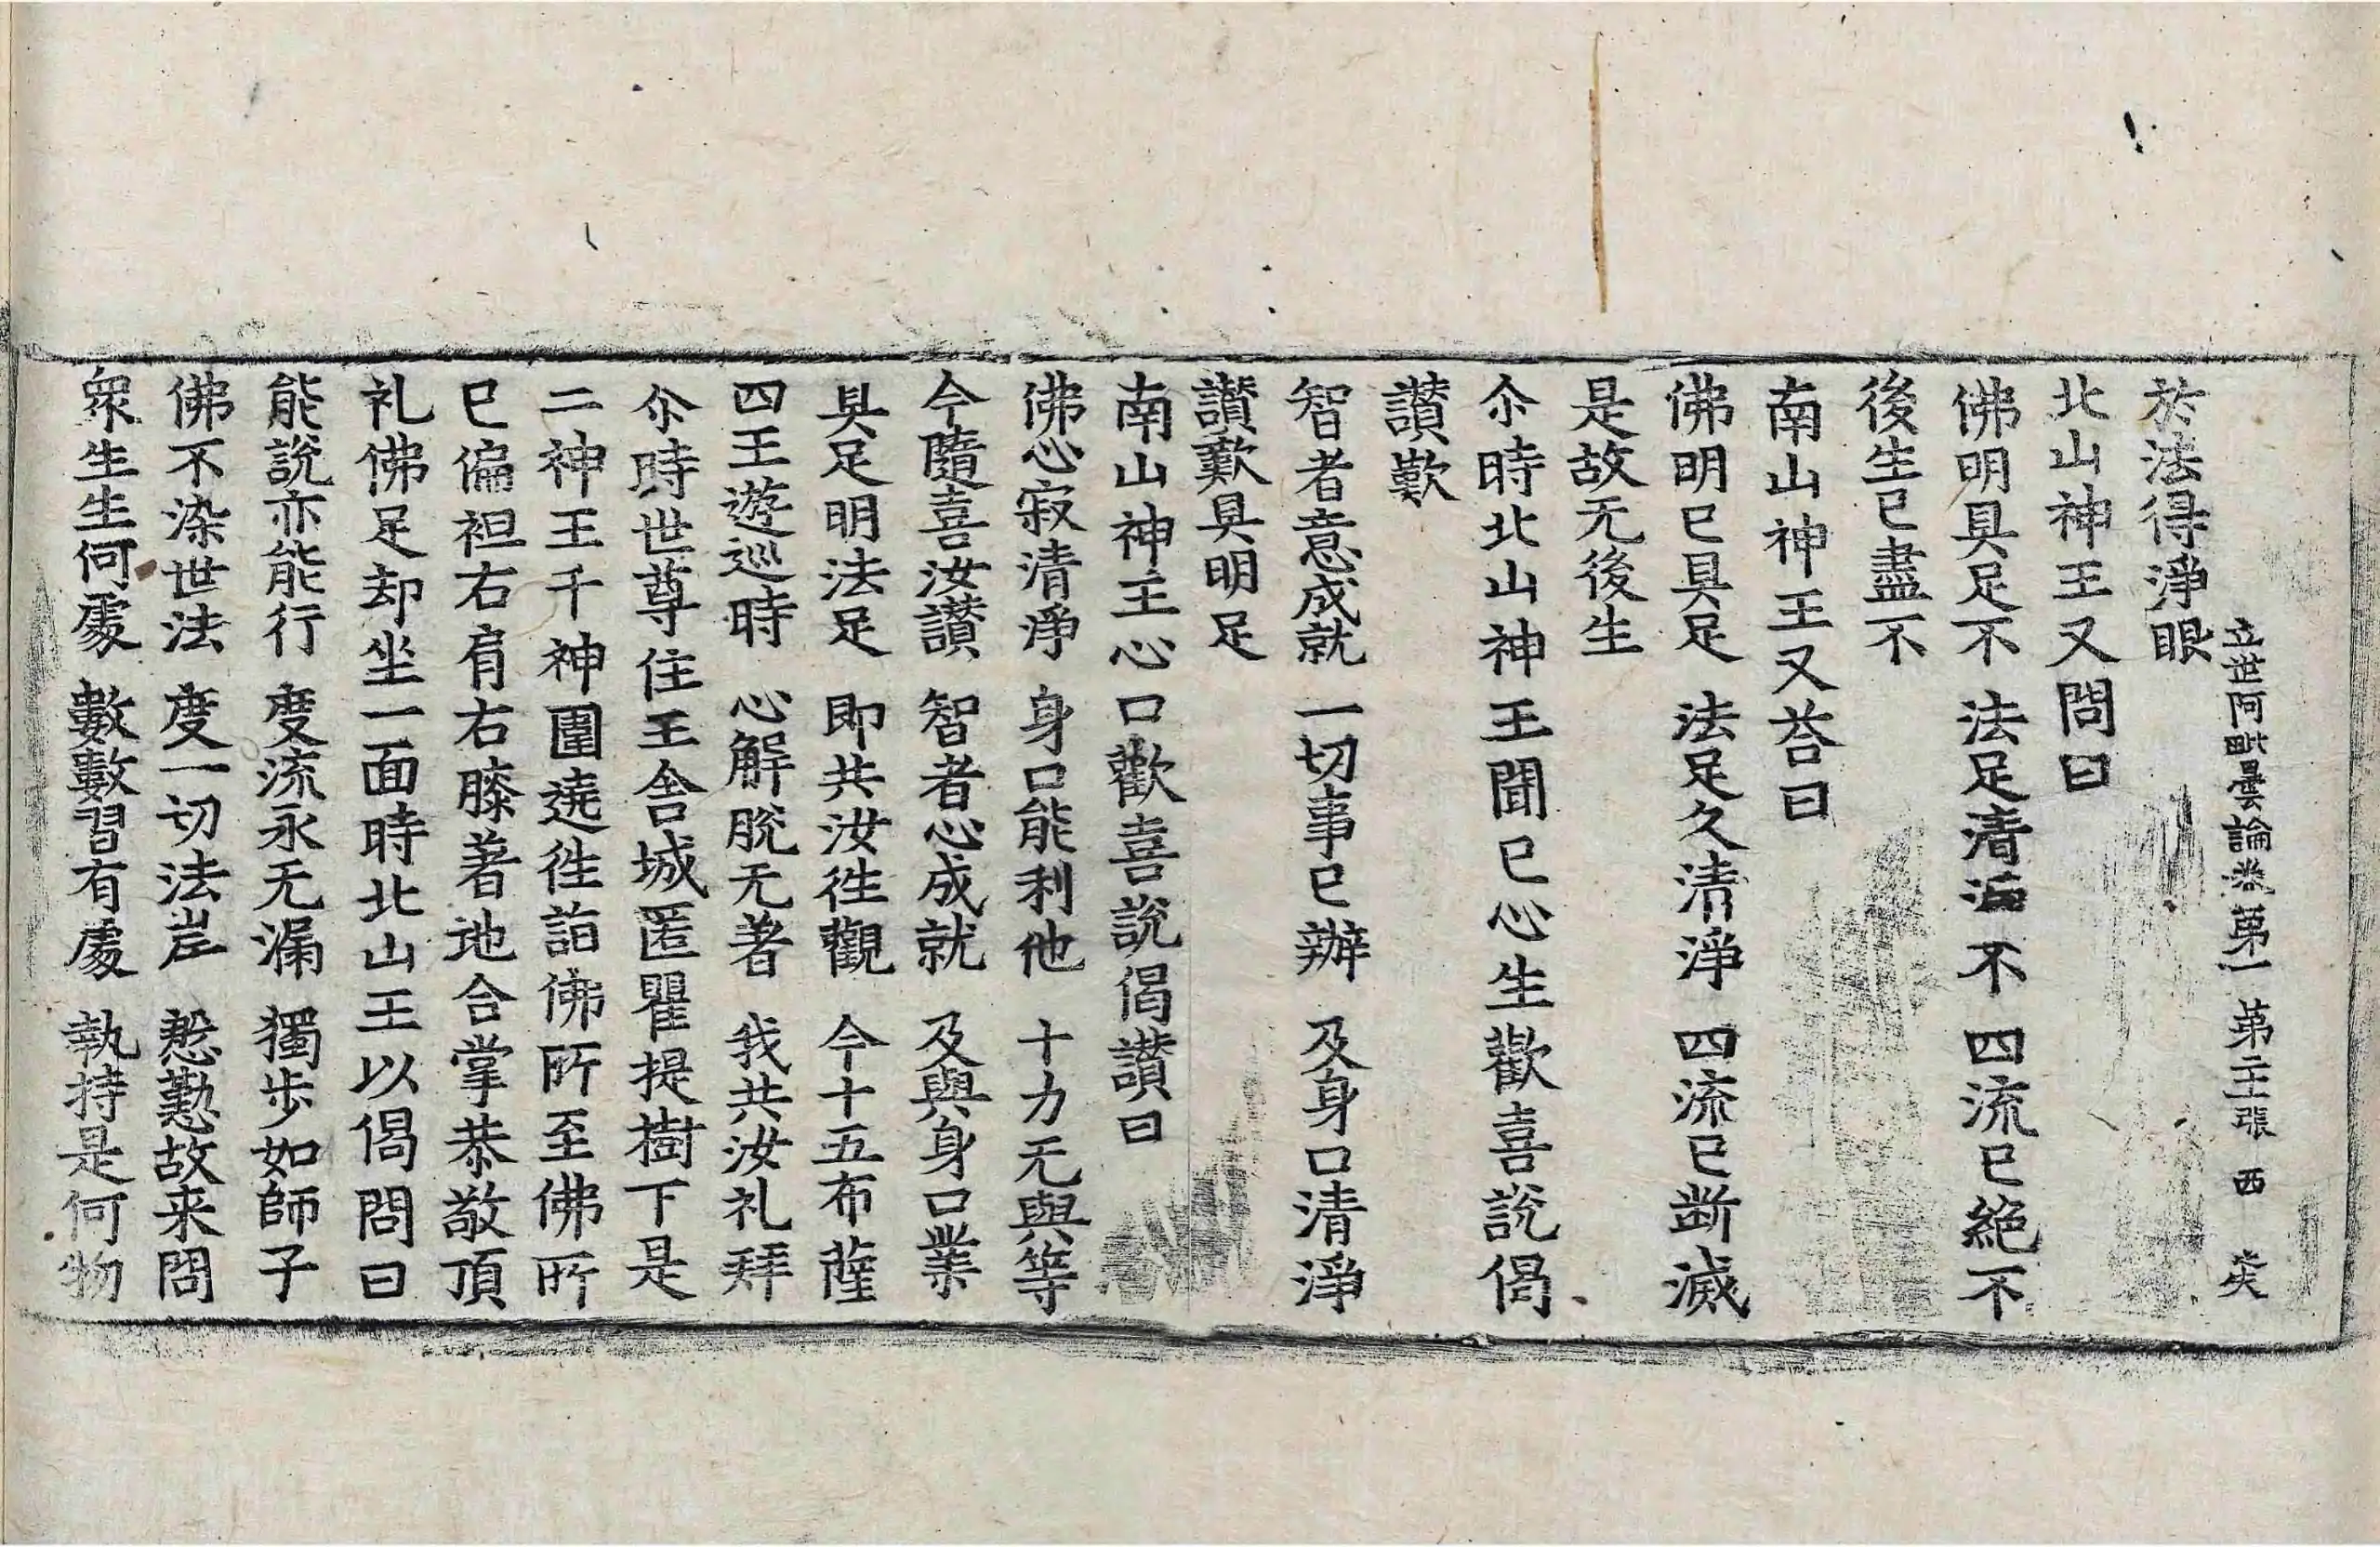 立世阿毗曇論卷第一 第二張 西
於法得淨眼
北山神王又問曰
佛明具足不 法足清淨不 四流已絕不
後生已盡不
南山神王又荅曰
佛明已具足 法足久清淨 四流已断滅
是故无後生
尒時北山神王聞已心生歡喜說偈
讃歎
智者意成就 一切事已辦 及身口清淨
讃歎具明足
南山神王心口歡喜說偈讃曰
佛心寂清淨 身口能利他 十力无與等
今隨喜汝讃 智者心成就 及與身口業
具足明法足 即共汝徃觀 今十五布薩
四王遊巡時 心解脫无著 我共汝礼拜
尒時世尊住王舍城匿瞿提樹下是
二神王千神圍遶徃詣佛所至佛所
已偏袒右肩右膝著地合掌恭敬頂
礼佛足却坐一面時北山王以偈問曰
能說亦能行 度流永无漏 獨步如師子
佛不染世法 度一切法岸 慇懃故来問
衆生生何處 數數習有處 執持是何物